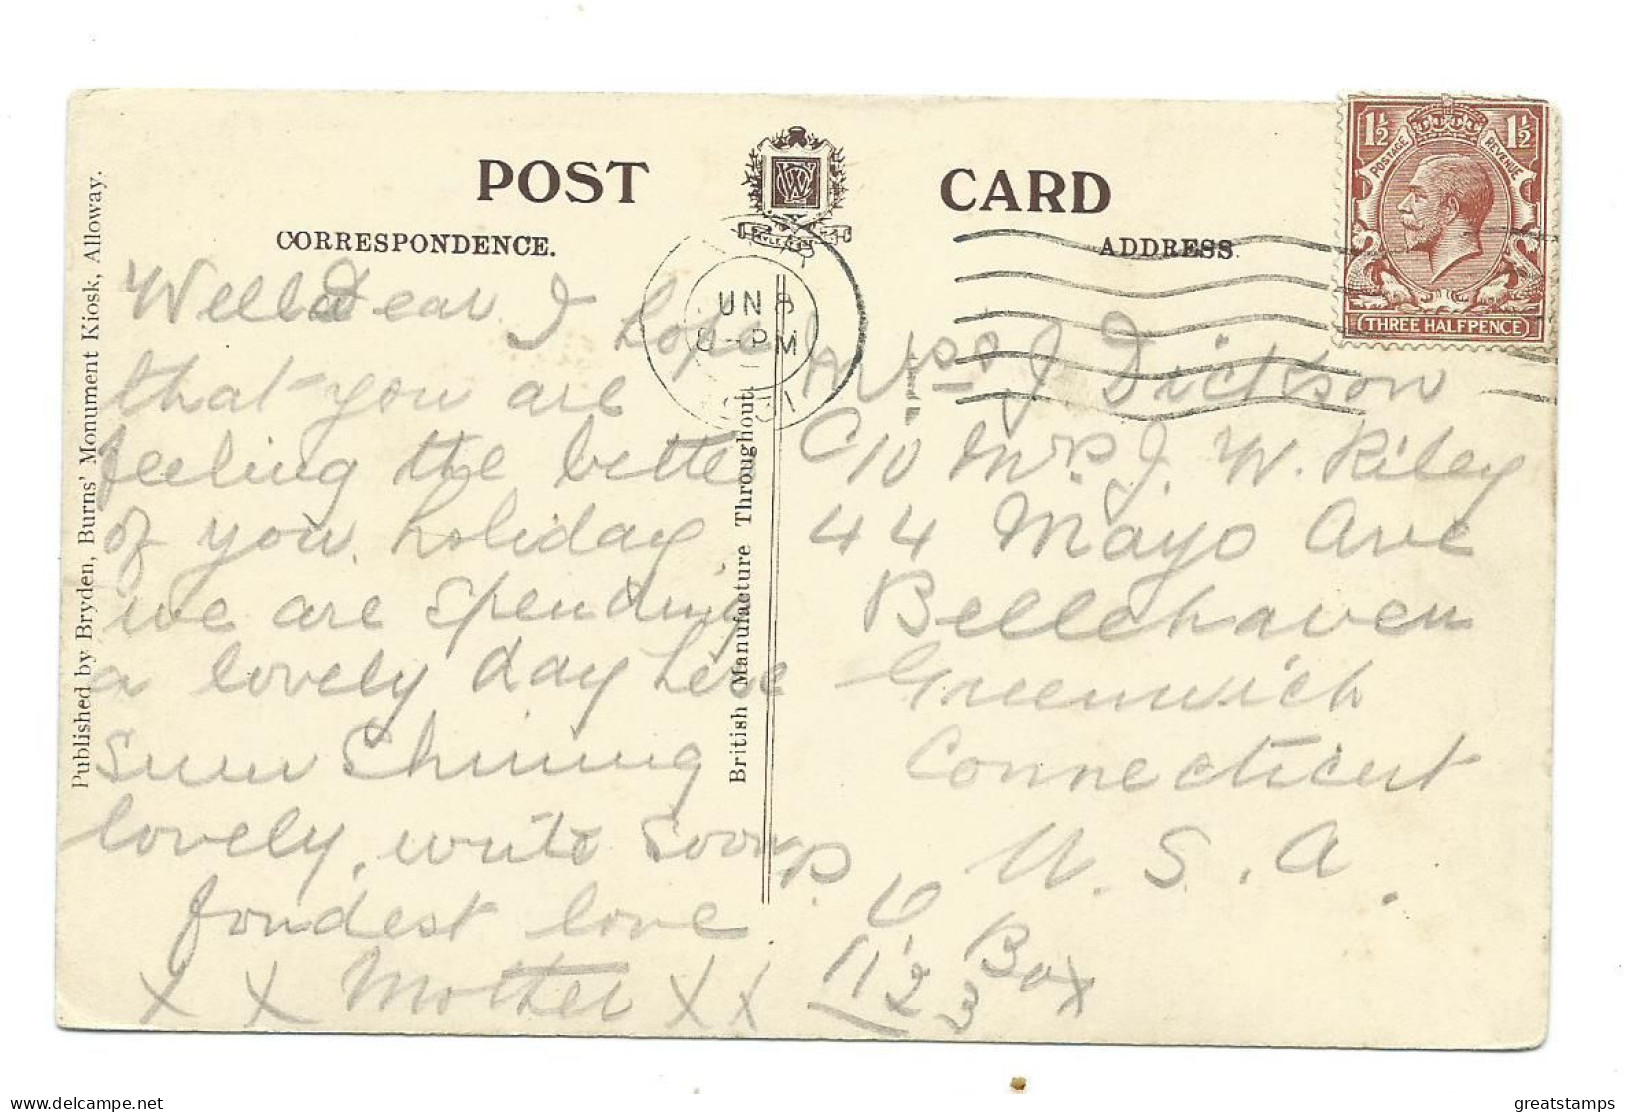 POST CARD
CORRESPONDENCE.
ADDRESS
1½ 1½
POSTAGE REVENUE
THREE HALFPENCE
UN 8
8 - PM
Published by Bryden, Burns' Monument Kiosk, Alloway.
British Manufacture Throughout
Well Dear I hope
that you are
feeling the better
of you holiday
we are spending
a lovely day here
sun shining
lovely, write soon
fondest love
x x Mother x x
Miss J Dickson
C/o Mrs J. W. Riley
44 Mayo Ave
Bellehaven
Greenwich
Connecticut
U. S. A.
P O Box
1123
greatstamps